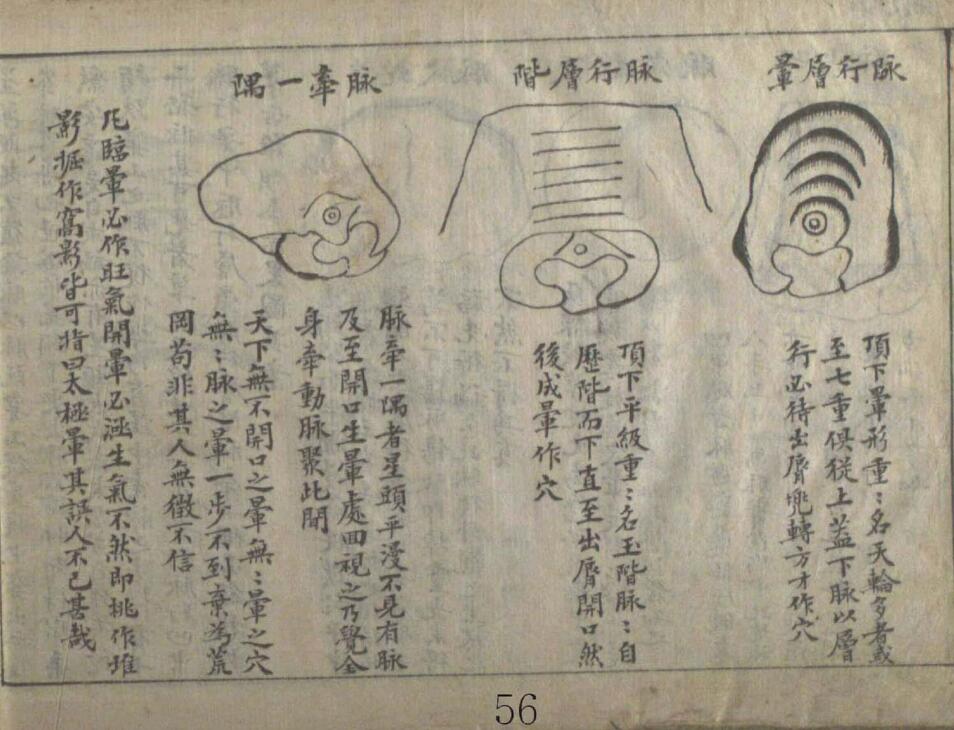 脉行層暈
頂下暈形重〻名天輪多者或
至七重俱從上盖下脉以層
行必待出唇兜轉方才作穴
脉行層階
頂下平級重〻名玉階脉〻自
歷階而下直至出唇開口然
後成暈作穴
脉牽一隅
脉牽一隅者星頭平漫不見有脉
及至開口生暈處回視之乃覺全
身牽動脉聚此間
天下無不開口之暈無〻暈之穴
無〻脉之暈一步不到棄為荒
岡苟非其人無徵不信
凡臨暈必作旺氣開暈必涵生氣不然即挑作堆
影掘作窩影皆可指曰太極暈其誤人不已甚哉
56